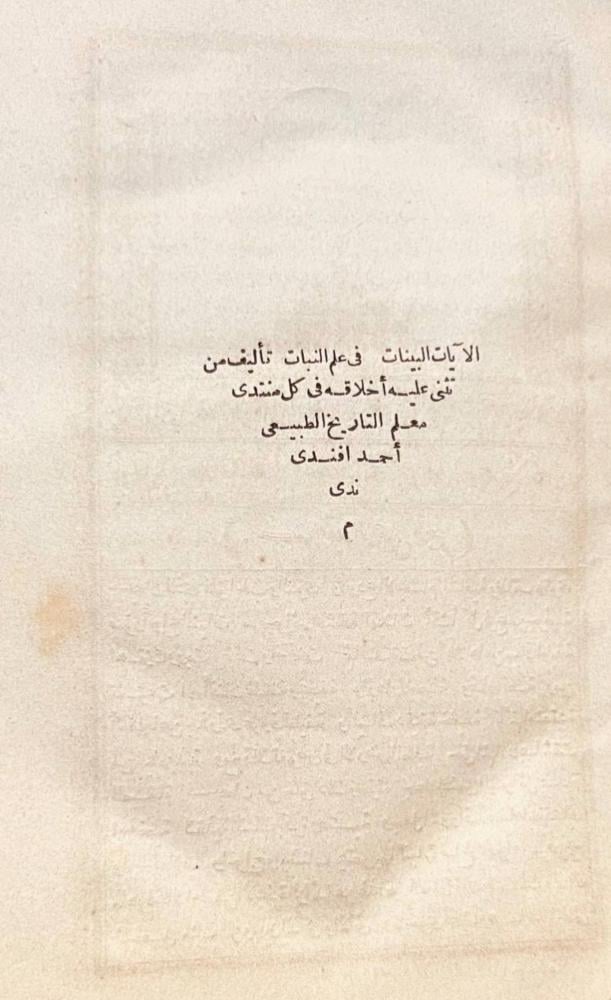 الآيات البينات فى علم النبات تأليف من
تثنى عليه أخلاقه فى كل منتدى
معلم التاريخ الطبيعى
أحمد افندى
ندى
م